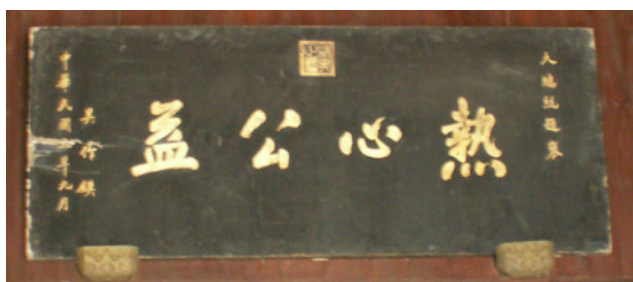 大總統題褒
熱心公益
吳
中華民國年九月